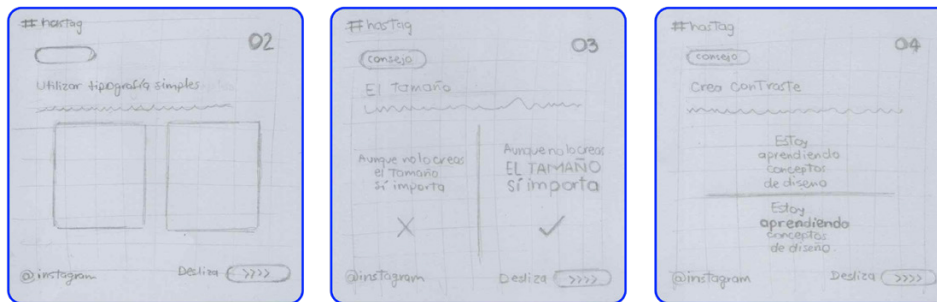 # hasTag
02
Utilizar tipografía simples
@instagram
Desliza >>>>
# hasTag
03
consejo
El Tamaño
Aunque no lo creas
el Tamaño
sí importa
Aunque no lo creas
EL TAMAÑO
sí importa
@instagram
Desliza >>>>
# hasTag
04
consejo
Crea conTraste
Estoy
aprendiendo
conceptos
de diseño
Estoy
aprendiendo
conceptos
de diseño.
@instagram
Desliza >>>>